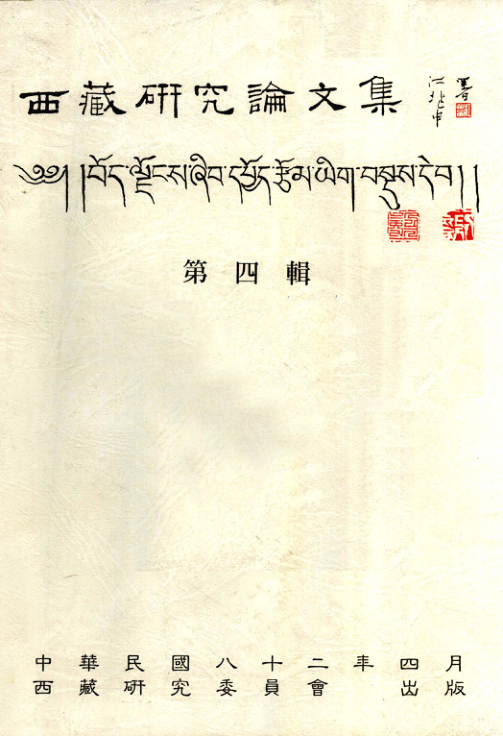 西藏研究論文集
江兆申 署
༄༅། །བོད་ལྗོངས་ཞིབ་དཔྱོད་རྩོམ་ཡིག་བསྡུས་དེབ། །
第四輯
中華民國八十二年四月
西藏研究委員會出版